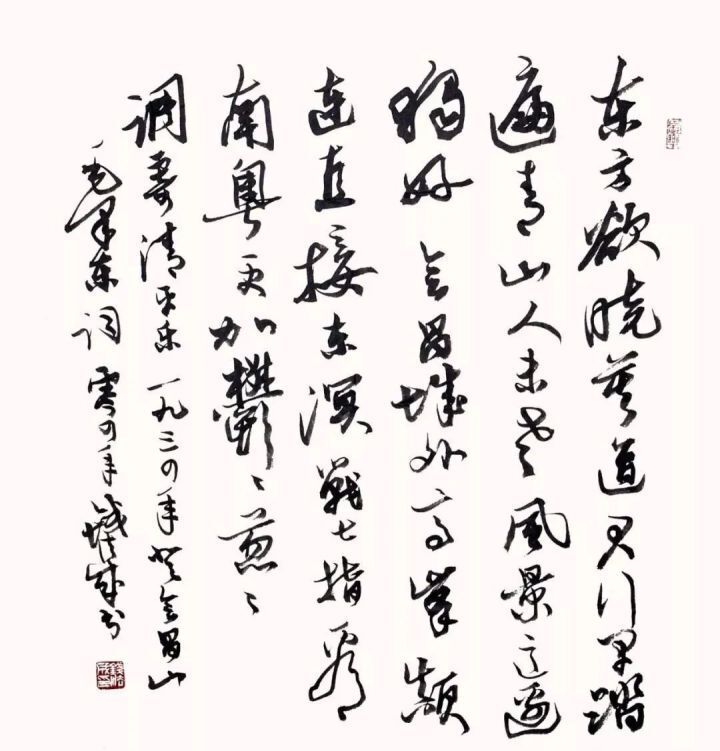 东方欲晓莫道君行早踏
遍青山人未老風景这边
獨好会昌城外高峯顛
连直接东溟戰士指看
南粤更加鬱〻葱〻
调寄清平乐一九三四年登会昌山
毛泽东词 零四年 钱法成书